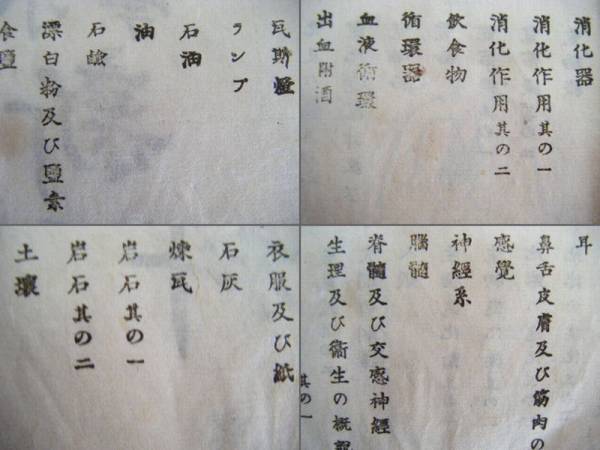 瓦斯燈
ランプ
石油
油
石鹼
漂白粉及び鹽素
食鹽
消化器
消化作用其の一
消化作用其の二
飲食物
循環器
血液循環
出血附酒
衣服及び紙
石灰
煉瓦
岩石其の一
岩石其の二
土壤
耳
鼻舌皮膚及び筋肉の
感覺
神經系
腦髓
脊髓及び交感神經
生理及び衞生の概說
其の一